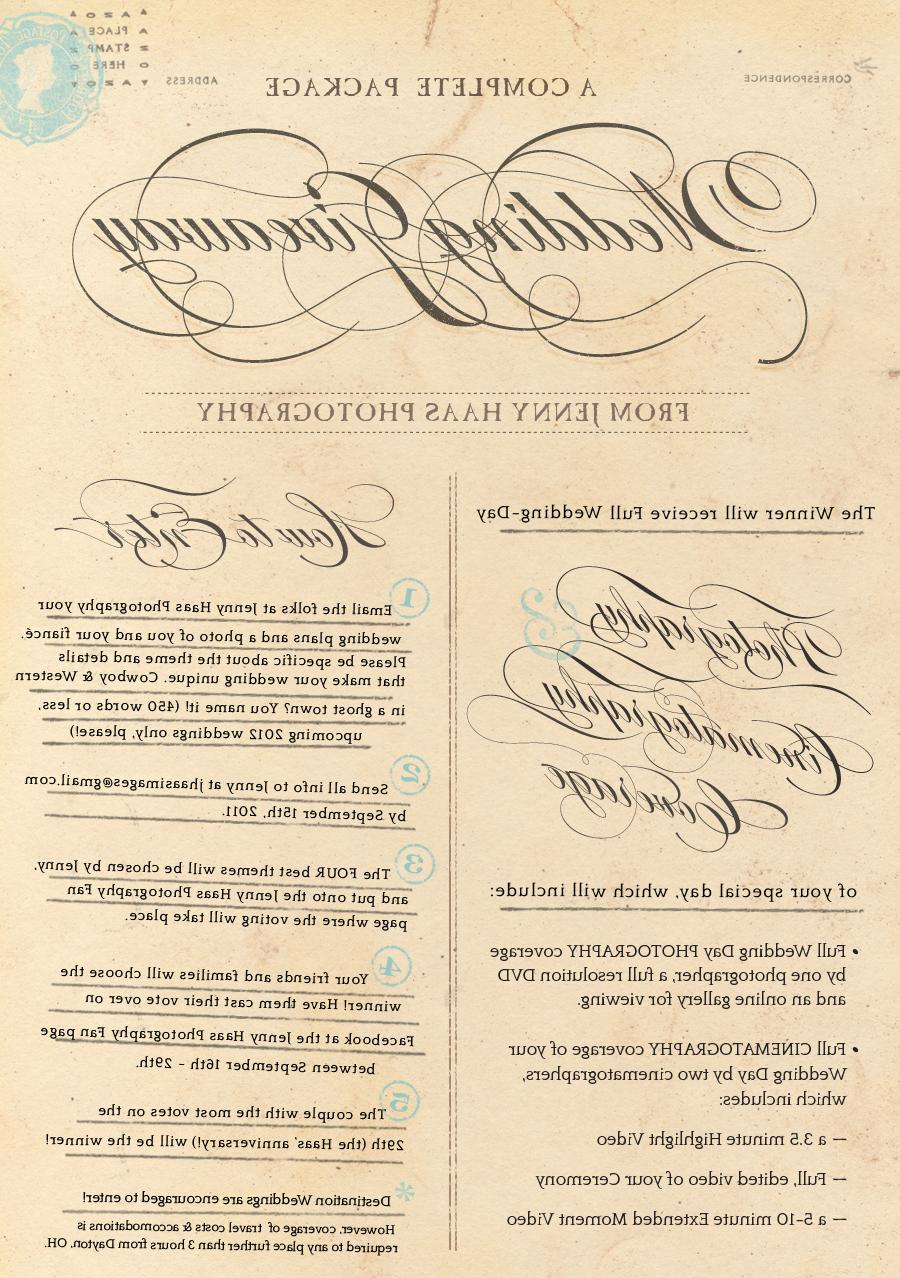 CORRESPONDENCE
ADDRESS
PLACE
STAMP
HERE
A COMPLETE PACKAGE
Wedding Giveaway
FROM JENNY HAAS PHOTOGRAPHY
The Winner will receive Full Wedding-Day
Photography &
Cinematography
Coverage
of your special day, which will include:
• Full Wedding Day PHOTOGRAPHY coverage
by one photographer, a full resolution DVD
and an online gallery for viewing.
• Full CINEMATOGRAPHY coverage of your
Wedding Day by two cinematographers,
which includes:
— a 3.5 minute Highlight Video
— Full, edited video of your Ceremony
— a 5-10 minute Extended Moment Video
How to Enter
1 Email the folks at Jenny Haas Photography your
wedding plans and a photo of you and your fiancé.
Please be specific about the theme and details
that make your wedding unique. Cowboy & Western
in a ghost town? You name it! (450 words or less,
upcoming 2012 weddings only, please!)
2 Send all info to Jenny at jhaasimages@gmail.com
by September 15th, 2011.
3 The FOUR best themes will be chosen by Jenny,
and put onto the Jenny Haas Photography Fan
page where the voting will take place.
4 Your friends and families will choose the
winner! Have them cast their vote over on
Facebook at the Jenny Haas Photography Fan page
between September 16th - 29th.
5 The couple with the most votes on the
29th (the Haas' anniversary!) will be the winner!
* Destination Weddings are encouraged to enter!
However, coverage of travel costs & accomodations is
required to any place further than 3 hours from Dayton, OH.